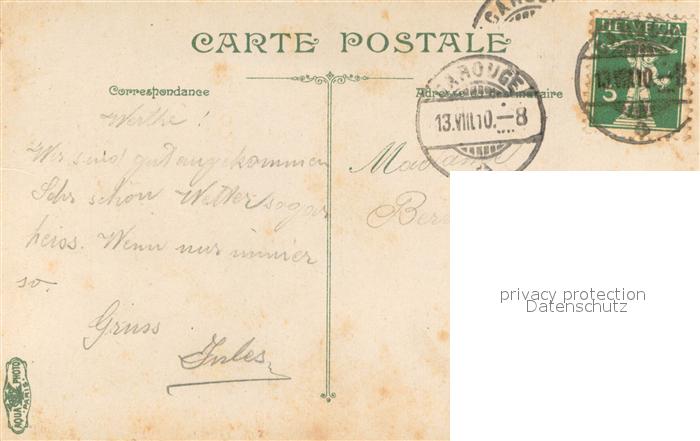 CARTE POSTALE
Correspondance
Adresse du Destinataire
CAROUGE
13.VIII.10.–8
HELVETIA
5
13.VIII.10.–8
Werthe!
Wir sind gut angekommen
Sehr schön Wetter sogar
heiss. Wenn nur immer
so.
Gruss
Jules
Madame
AQUA PHOTO
PARIS
privacy protection
Datenschutz